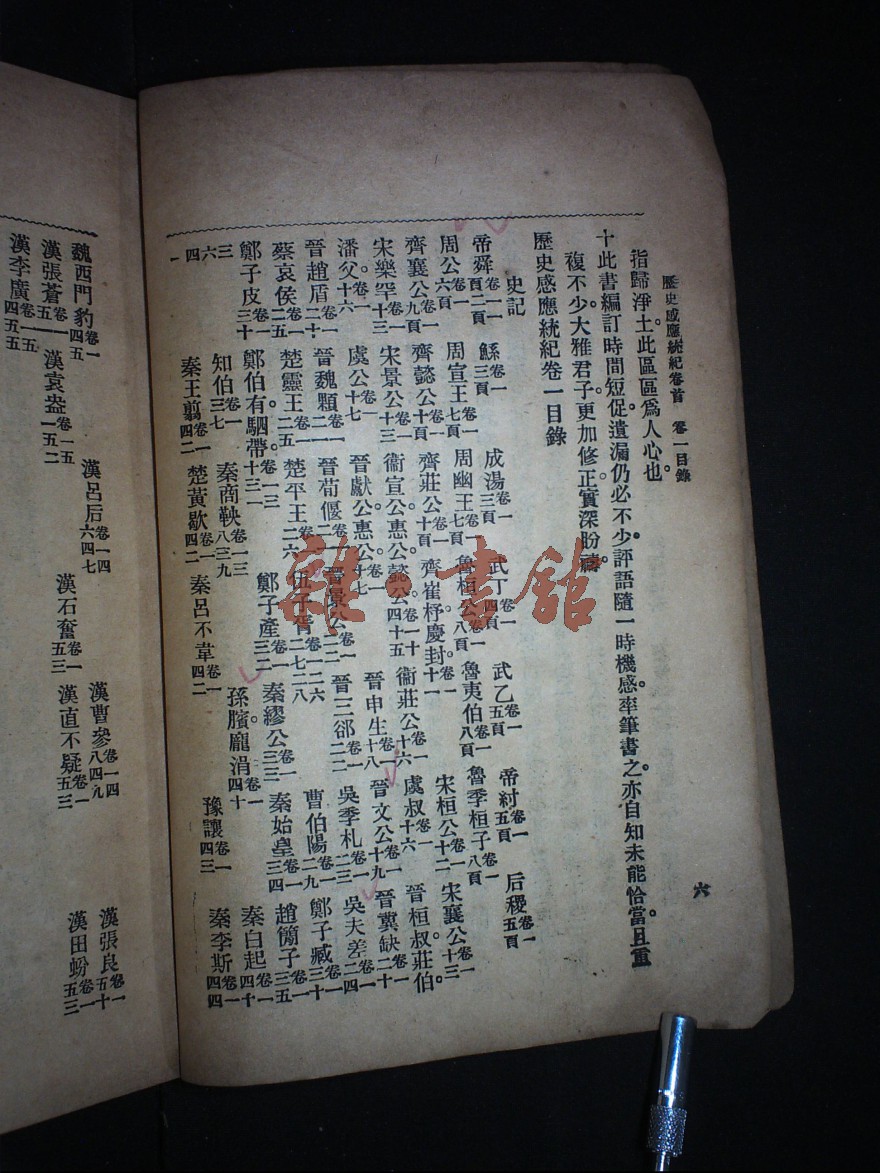 歷史感應統紀卷首　卷一目錄
六
指歸淨土。此區區爲人心也。
十此書編訂時間短促。遺漏仍必不少。評語隨一時機感。率筆書之。亦自知未能恰當。且重
複不少。大雅君子。更加修正。實深盼禱。
歷史感應統紀卷一目錄
史記
帝舜卷一一頁二頁　鯀卷一三頁　成湯卷一三頁　武丁卷一四頁　武乙卷一五頁　帝紂卷一五頁　后稷卷一五頁
周公卷一六頁　周宣王卷一七頁　周幽王卷一七頁　魯桓公卷一八頁　魯夷伯卷一八頁　魯季桓子卷一八頁
齊襄公卷一九頁　齊懿公卷一十頁　齊莊公卷一十頁　齊崔杼慶封卷一十一　宋桓公卷一十二　宋襄公卷一十三
宋樂罕卷一十三　宋景公卷一十三　衞宣公惠公懿公卷一十四十五　衞莊公卷一十六　虞叔卷一十六　晉桓叔莊伯。
潘父。卷一十六　虞公卷一十七　晉獻公惠公。卷一十七　晉申生卷一十八　晉文公卷一十九　晉冀缺卷一二十
晉趙盾卷一二十　晉魏顆卷一二一　晉荀偃卷一二一　晉景公卷一二二　晉三郤卷一二二　吳季札卷一二三　吳夫差卷一二四
蔡哀侯卷一二五　楚靈王卷一二五　楚平王卷一二六　伍子胥卷一二六二七二八　曹伯陽卷一二九　鄭子臧卷一三十
鄭子皮卷一三十　鄭伯有駟帶。卷一三十三一　鄭子產卷一三二　秦繆公卷一三三　秦始皇卷一三四　趙簡子卷一三五
三六四一　知伯卷一三七　秦商鞅卷一三三八三九　孫臏。龐涓卷一四十　秦白起卷一四十
秦王翦卷一四二　楚黃歇卷一四二　秦呂不韋卷一四二　豫讓卷一四三　秦李斯卷一四四
魏西門豹卷一四五　漢呂后卷一四六四七　漢曹參卷一四八四九　漢張良卷一五十
漢張蒼卷一五一　漢袁盎卷一五一五二　漢石奮卷一五三　漢直不疑卷一五三　漢田蚡卷一五三
漢李廣卷一五四五五
雜·書館